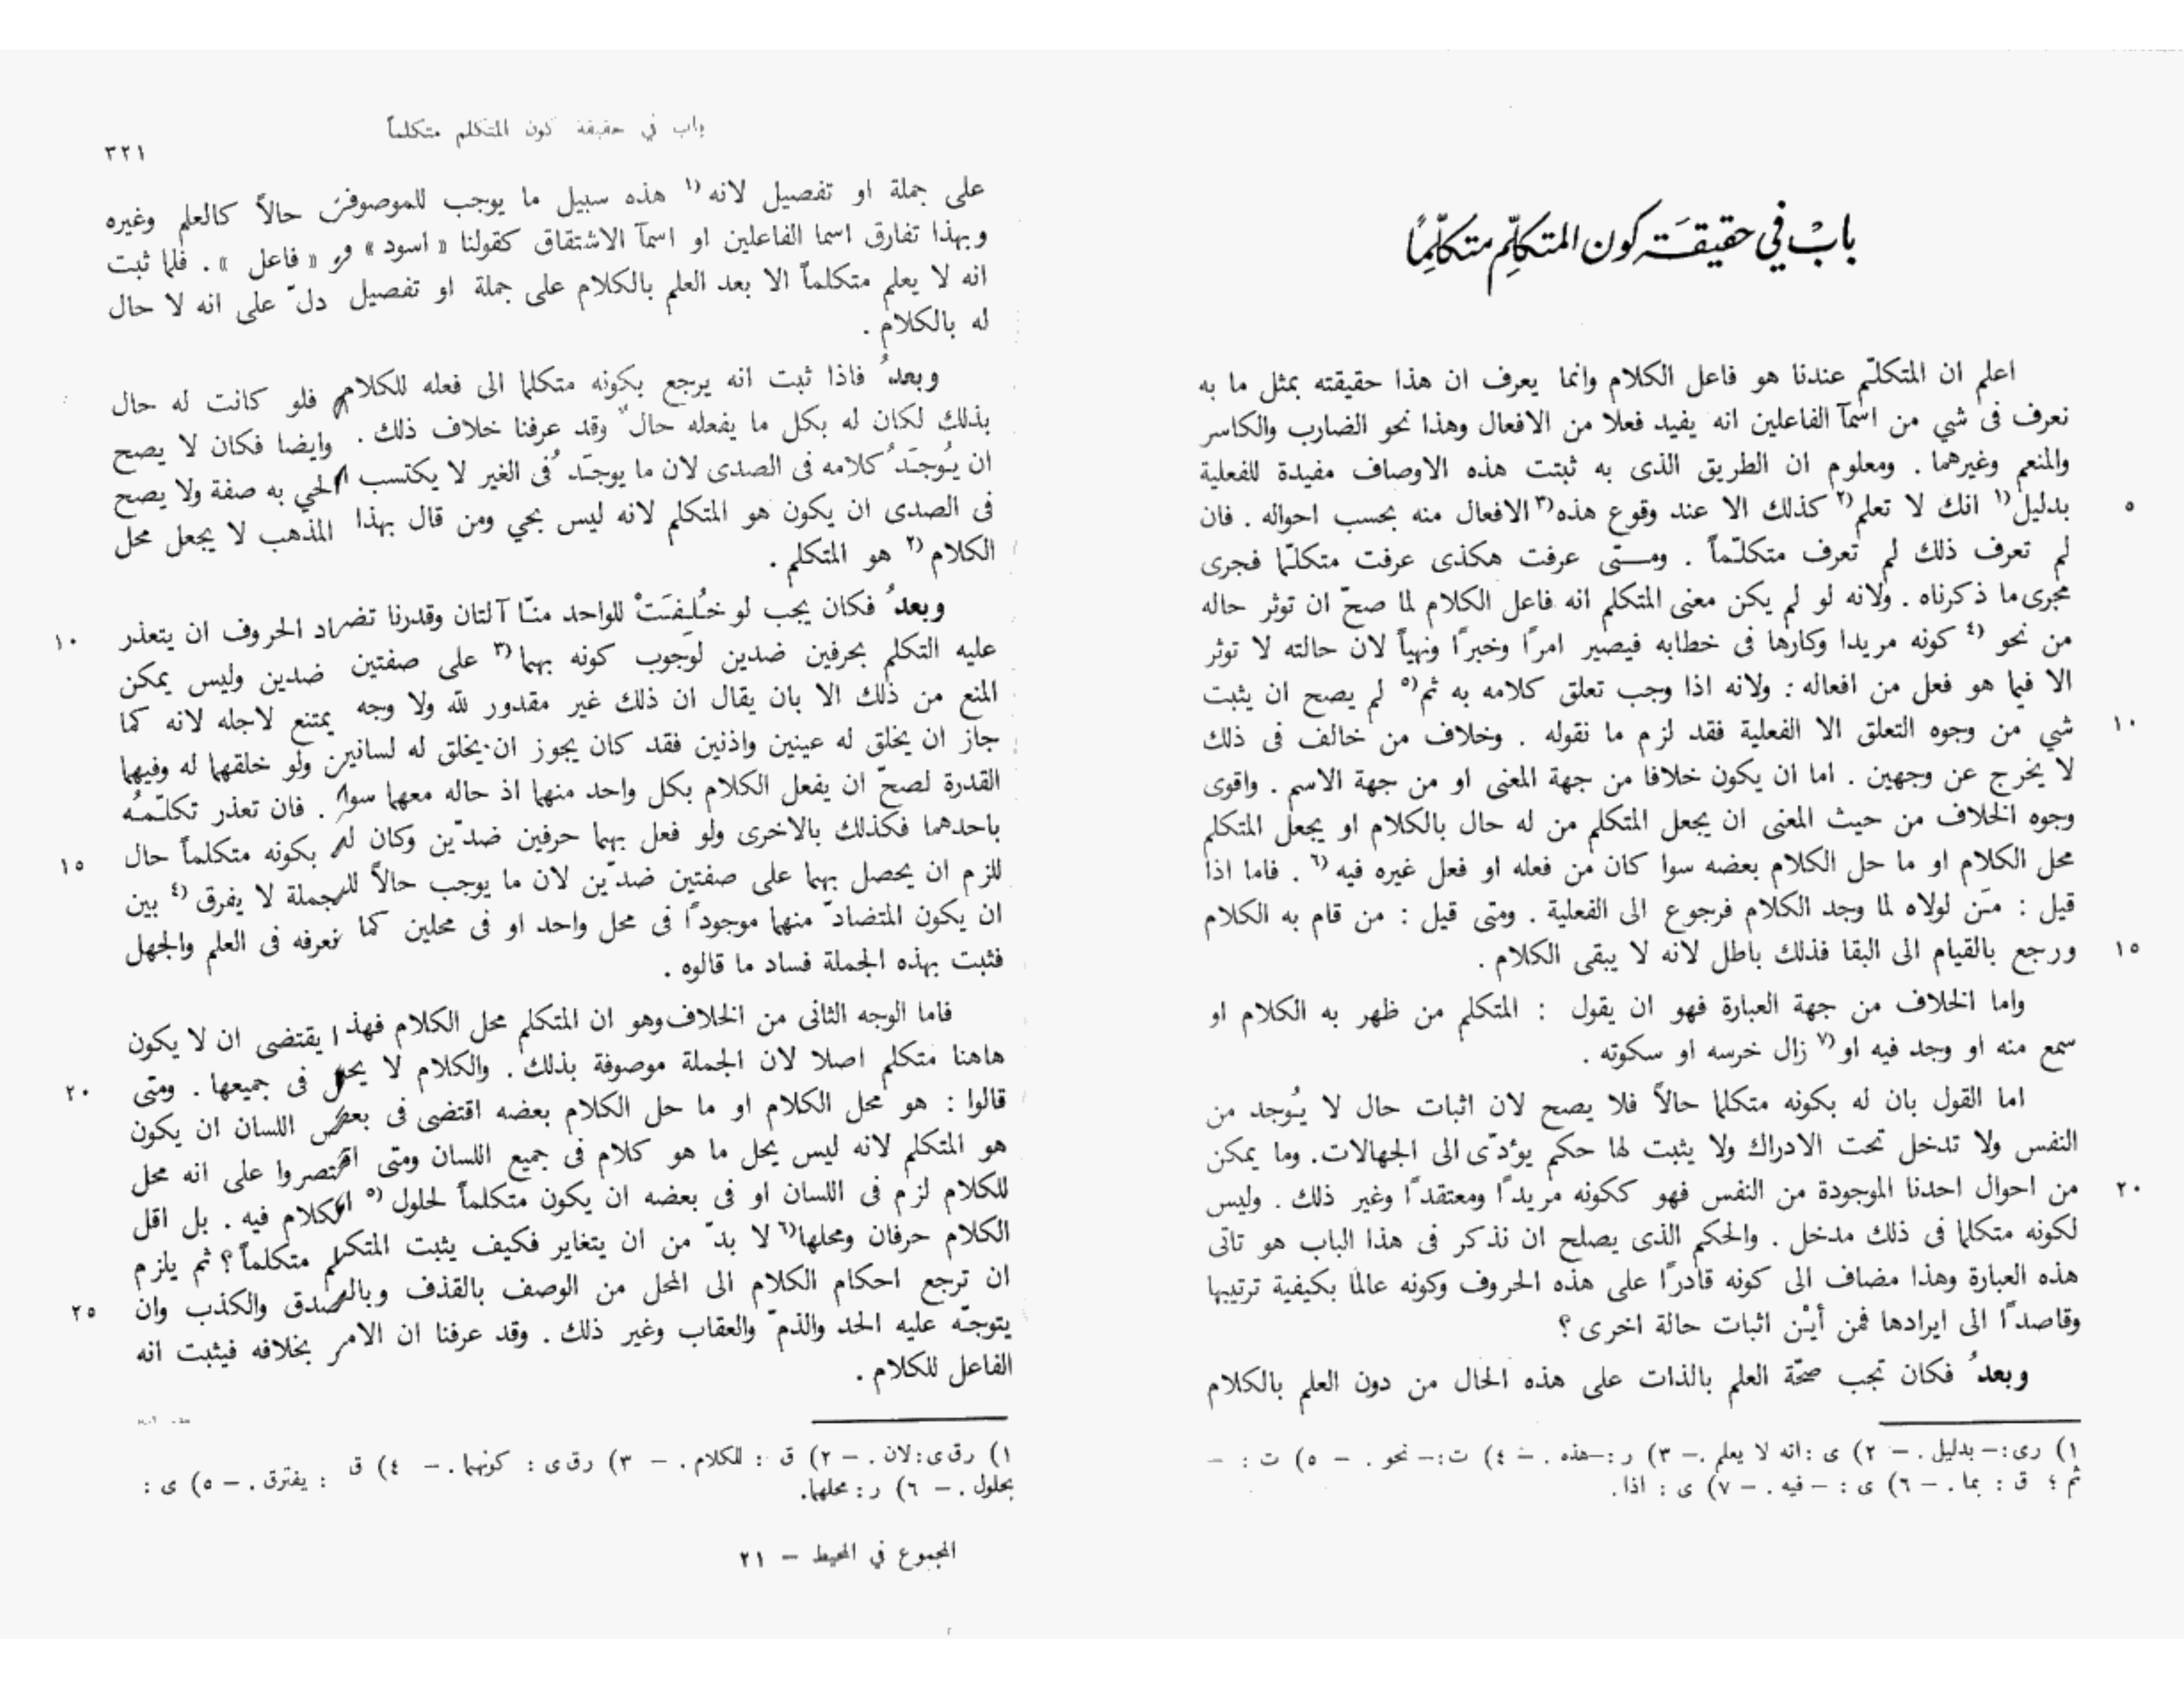 بابْ في حقيقَة كون المتكلِّم متكلِّمًا
اعلم ان المتكلّم عندنا هو فاعل الكلام وانما يعرف ان هذا حقيقته بمثل ما به
نعرف فى شي من اسمآ الفاعلين انه يفيد فعلا من الافعال وهذا نحو الضارب والكاسر
والمنعم وغيرهما . ومعلوم ان الطريق الذى به ثبتت هذه الاوصاف مفيدة للفعلية
بدليل ١) انك لا تعلم ٢) كذلك الا عند وقوع هذه ٣) الافعال منه بحسب احواله . فان ٥
لم تعرف ذلك لم تعرف متكلّماً . ومتى عرفت هكذى عرفت متكلّما فجرى
مجرى ما ذكرناه . ولانه لو لم يكن معنى المتكلم انه فاعل الكلام لما صحّ ان توثر حاله
من نحو ٤) كونه مريدا وكارها فى خطابه فيصير امرًا وخبرًا ونهياً لان حالته لا توثر
الا فيما هو فعل من افعاله : ولانه اذا وجب تعلق كلامه به ثم ٥) لم يصح ان يثبت
شي من وجوه التعلق الا الفعلية فقد لزم ما نقوله . وخلاف من خالف فى ذلك ١٠
لا يخرج عن وجهين . اما ان يكون خلافا من جهة المعنى او من جهة الاسم . واقوى
وجوه الخلاف من حيث المعنى ان يجعل المتكلم من له حال بالكلام او يجعل المتكلم
محل الكلام او ما حل الكلام بعضه سوا كان من فعله او فعل غيره فيه ٦) . فاما اذا
قيل : مَن لولاه لما وجد الكلام فرجوع الى الفعلية . ومتى قيل : من قام به الكلام
ورجع بالقيام الى البقا فذلك باطل لانه لا يبقى الكلام . ١٥
واما الخلاف من جهة العبارة فهو ان يقول : المتكلم من ظهر به الكلام او
سمع منه او وجد فيه او ٧) زال خرسه او سكوته .
اما القول بان له بكونه متكلما حالاً فلا يصح لان اثبات حال لا يُوجد من
النفس ولا تدخل تحت الادراك ولا يثبت لها حكم يؤدّى الى الجهالات. وما يمكن
من احوال احدنا الموجودة من النفس فهو ككونه مريدًا ومعتقدًا وغير ذلك . وليس ٢٠
لكونه متكلما فى ذلك مدخل . والحكم الذى يصلح ان نذكر فى هذا الباب هو تاتى
هذه العبارة وهذا مضاف الى كونه قادرًا على هذه الحروف وكونه عالما بكيفية ترتيبها
وقاصدًا الى ايرادها فمن أيْن اثبات حالة اخرى ؟
وبعدُ فكان تجب صحّة العلم بالذات على هذه الحال من دون العلم بالكلام
١) رى: – بدليل . – ٢) ى : انه لا يعلم . – ٣) ر : – هذه . – ٤) ت : – نحو . – ٥) ت : –
ثم ؛ ق : بما . – ٦) ى : – فيه . – ٧) ى : اذا .
باب في حقيقة كون المتكلم متكلماً
٣٢١
على جملة او تفصيل لانه ١) هذه سبيل ما يوجب للموصوف حالاً كالعلم وغيره
وبهذا تفارق اسما الفاعلين او اسمآ الاشتقاق كقولنا « اسود » و « فاعل » . فلما ثبت
انه لا يعلم متكلماً الا بعد العلم بالكلام على جملة او تفصيل دلّ على انه لا حال
له بالكلام .
وبعدُ فاذا ثبت انه يرجع بكونه متكلما الى فعله للكلام فلو كانت له حال
بذلك لكان له بكل ما يفعله حالٌ وقد عرفنا خلاف ذلك . وايضا فكان لا يصح
ان يُوجَدُ كلامه فى الصدى لان ما يوجَدُ فى الغير لا يكتسب الحي به صفة ولا يصح
فى الصدى ان يكون هو المتكلم لانه ليس بحي ومن قال بهذا المذهب لا يجعل محل
الكلام ٢) هو المتكلم .
وبعدُ فكان يجب لو خُلِقَتْ للواحد منّا آلتان وقدرنا تضاد الحروف ان يتعذر ١٠
عليه التكلم بحرفين ضدين لوجوب كونه بهما ٣) على صفتين ضدين وليس يمكن
المنع من ذلك الا بان يقال ان ذلك غير مقدور لله ولا وجه يمتنع لاجله لانه كما
جاز ان يخلق له عينين واذنين فقد كان يجوز ان يخلق له لسانين ولو خلقهما له وفيهما
القدرة لصحّ ان يفعل الكلام بكل واحد منهما اذ حاله معهما سوا . فان تعذر تكلّمُه
باحدهما فكذلك بالاخرى ولو فعل بهما حرفين ضدّين وكان له بكونه متكلماً حال ١٥
للزم ان يحصل بهما على صفتين ضدّين لان ما يوجب حالاً للجملة لا يفرق ٤) بين
ان يكون المتضادّ منهما موجودًا فى محل واحد او فى محلين كما نعرفه فى العلم والجهل
فثبت بهذه الجملة فساد ما قالوه .
فاما الوجه الثانى من الخلاف وهو ان المتكلم محل الكلام فهذا يقتضى ان لا يكون
هاهنا متكلم اصلا لان الجملة موصوفة بذلك . والكلام لا يحل فى جميعها . ومتى ٢٠
قالوا : هو محل الكلام او ما حل الكلام بعضه اقتضى فى بعض اللسان ان يكون
هو المتكلم لانه ليس يحل ما هو كلام فى جميع اللسان ومتى اقتصروا على انه محل
للكلام لزم فى اللسان او فى بعضه ان يكون متكلماً لحلول ٥) الكلام فيه . بل اقل
الكلام حرفان ومحلها ٦) لا بدّ من ان يتغاير فكيف يثبت المتكلم متكلماً ؟ ثم يلزم
ان ترجع احكام الكلام الى المحل من الوصف بالقذف وبالصدق والكذب وان ٢٥
يتوجّه عليه الحد والذمّ والعقاب وغير ذلك . وقد عرفنا ان الامر بخلافه فيثبت انه
الفاعل للكلام .
١) رق ى : لان . – ٢) ق : للكلام . – ٣) رق ى : كونهما . – ٤) ق : يفترق . – ٥) ى :
بحلول . – ٦) ر : محلهما.
المجموع في المحيط – ٢١